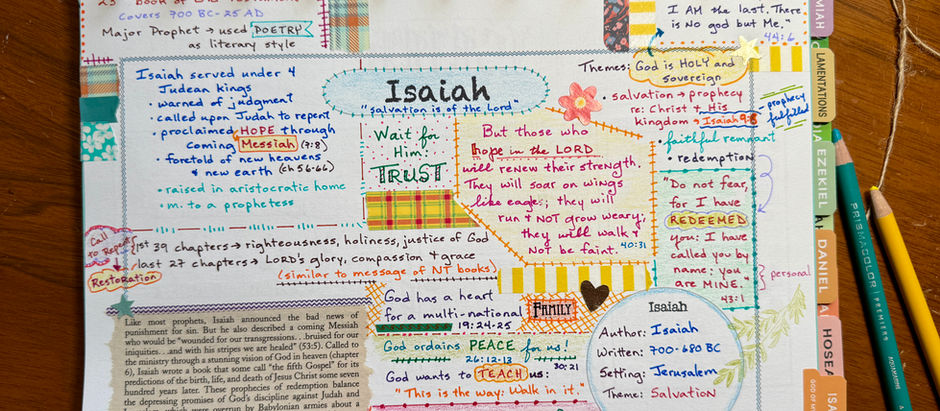 23rd book of Old Testament
Covers 700 BC-25 AD
Major Prophet → used POETRY
as literary style
I AM the last. There
is No god but Me."
44:6
Isaiah served under 4
Judean kings
• warned of judgment
• called upon Judah to repent
• proclaimed HOPE through
coming Messiah (7:8)
• foretold of new heavens
& new earth (ch 56-66)
• raised in aristocratic home
• m. to a prophetess
Isaiah
"salvation is of the Lord"
Wait for
Him:
TRUST
But those who
hope in the LORD
will renew their strength.
They will soar on wings
like eagles; they will
run & NOT grow weary,
they will walk &
Not be faint. 40:31
Themes: God is HOLY and
sovereign
• salvation → prophecy
re: Christ & His
kingdom → Isaiah 9:8
prophecy
fulfilled
• faithful remnant
• redemption
"Do not fear,
for I have
REDEEMED
you: I have
called you by
name: you
are MINE.
43:1
personal
Call
to Repent
Restoration
1st 39 chapters → righteousness, holiness, justice of God
last 27 chapters → LORD's glory, compassion & grace
(similar to message of NT books)
God has a heart
for a multi-national FAMILY
19:24-25
God ordains PEACE for us!
26:12-13
God wants to TEACH us: 30:21
"This is the way: Walk in it."
Isaiah
Author: Isaiah
Written: 700-680 BC
Setting: Jerusalem
Theme: Salvation
Like most prophets, Isaiah announced the bad news of
punishment for sin. But he also described a coming Messiah
who would be "wounded for our transgressions...bruised for our
iniquities...and with his stripes we are healed" (53:5). Called to
the ministry through a stunning vision of God in heaven (chapter
6), Isaiah wrote a book that some call "the fifth Gospel" for its
predictions of the birth, life, and death of Jesus Christ some seven
hundred years later. These prophecies of redemption balance
the depressing promises of God's discipline against Judah and
Jerusalem, which were overrun by Babylonian armies about a
MIAH
LAMENTATIONS
EZEKIEL
DANIEL
HOSEA
PRISMACOLOR
PREMIER